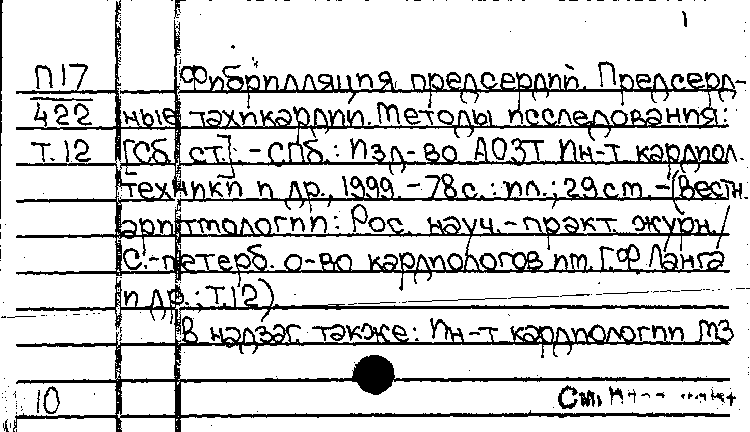 1
П17 Фибрилляция предсердий. Предсерд-
422 ные тахикардии. Методы исследования:
Т.12 [Сб. ст.]. - СПб.: Изд-во АОЗТ Ин-т кардиол.
техники и др., 1999. - 78 с.: ил.; 29 ст. - (Вестн.
аритмологии: Рос. науч.-практ. журн. /
С.-петерб. о-во кардиологов им. Г.Ф. Ланга
и др.; Т.12)
В надзаг. также: Ин-т кардиологии МЗ
10 См.